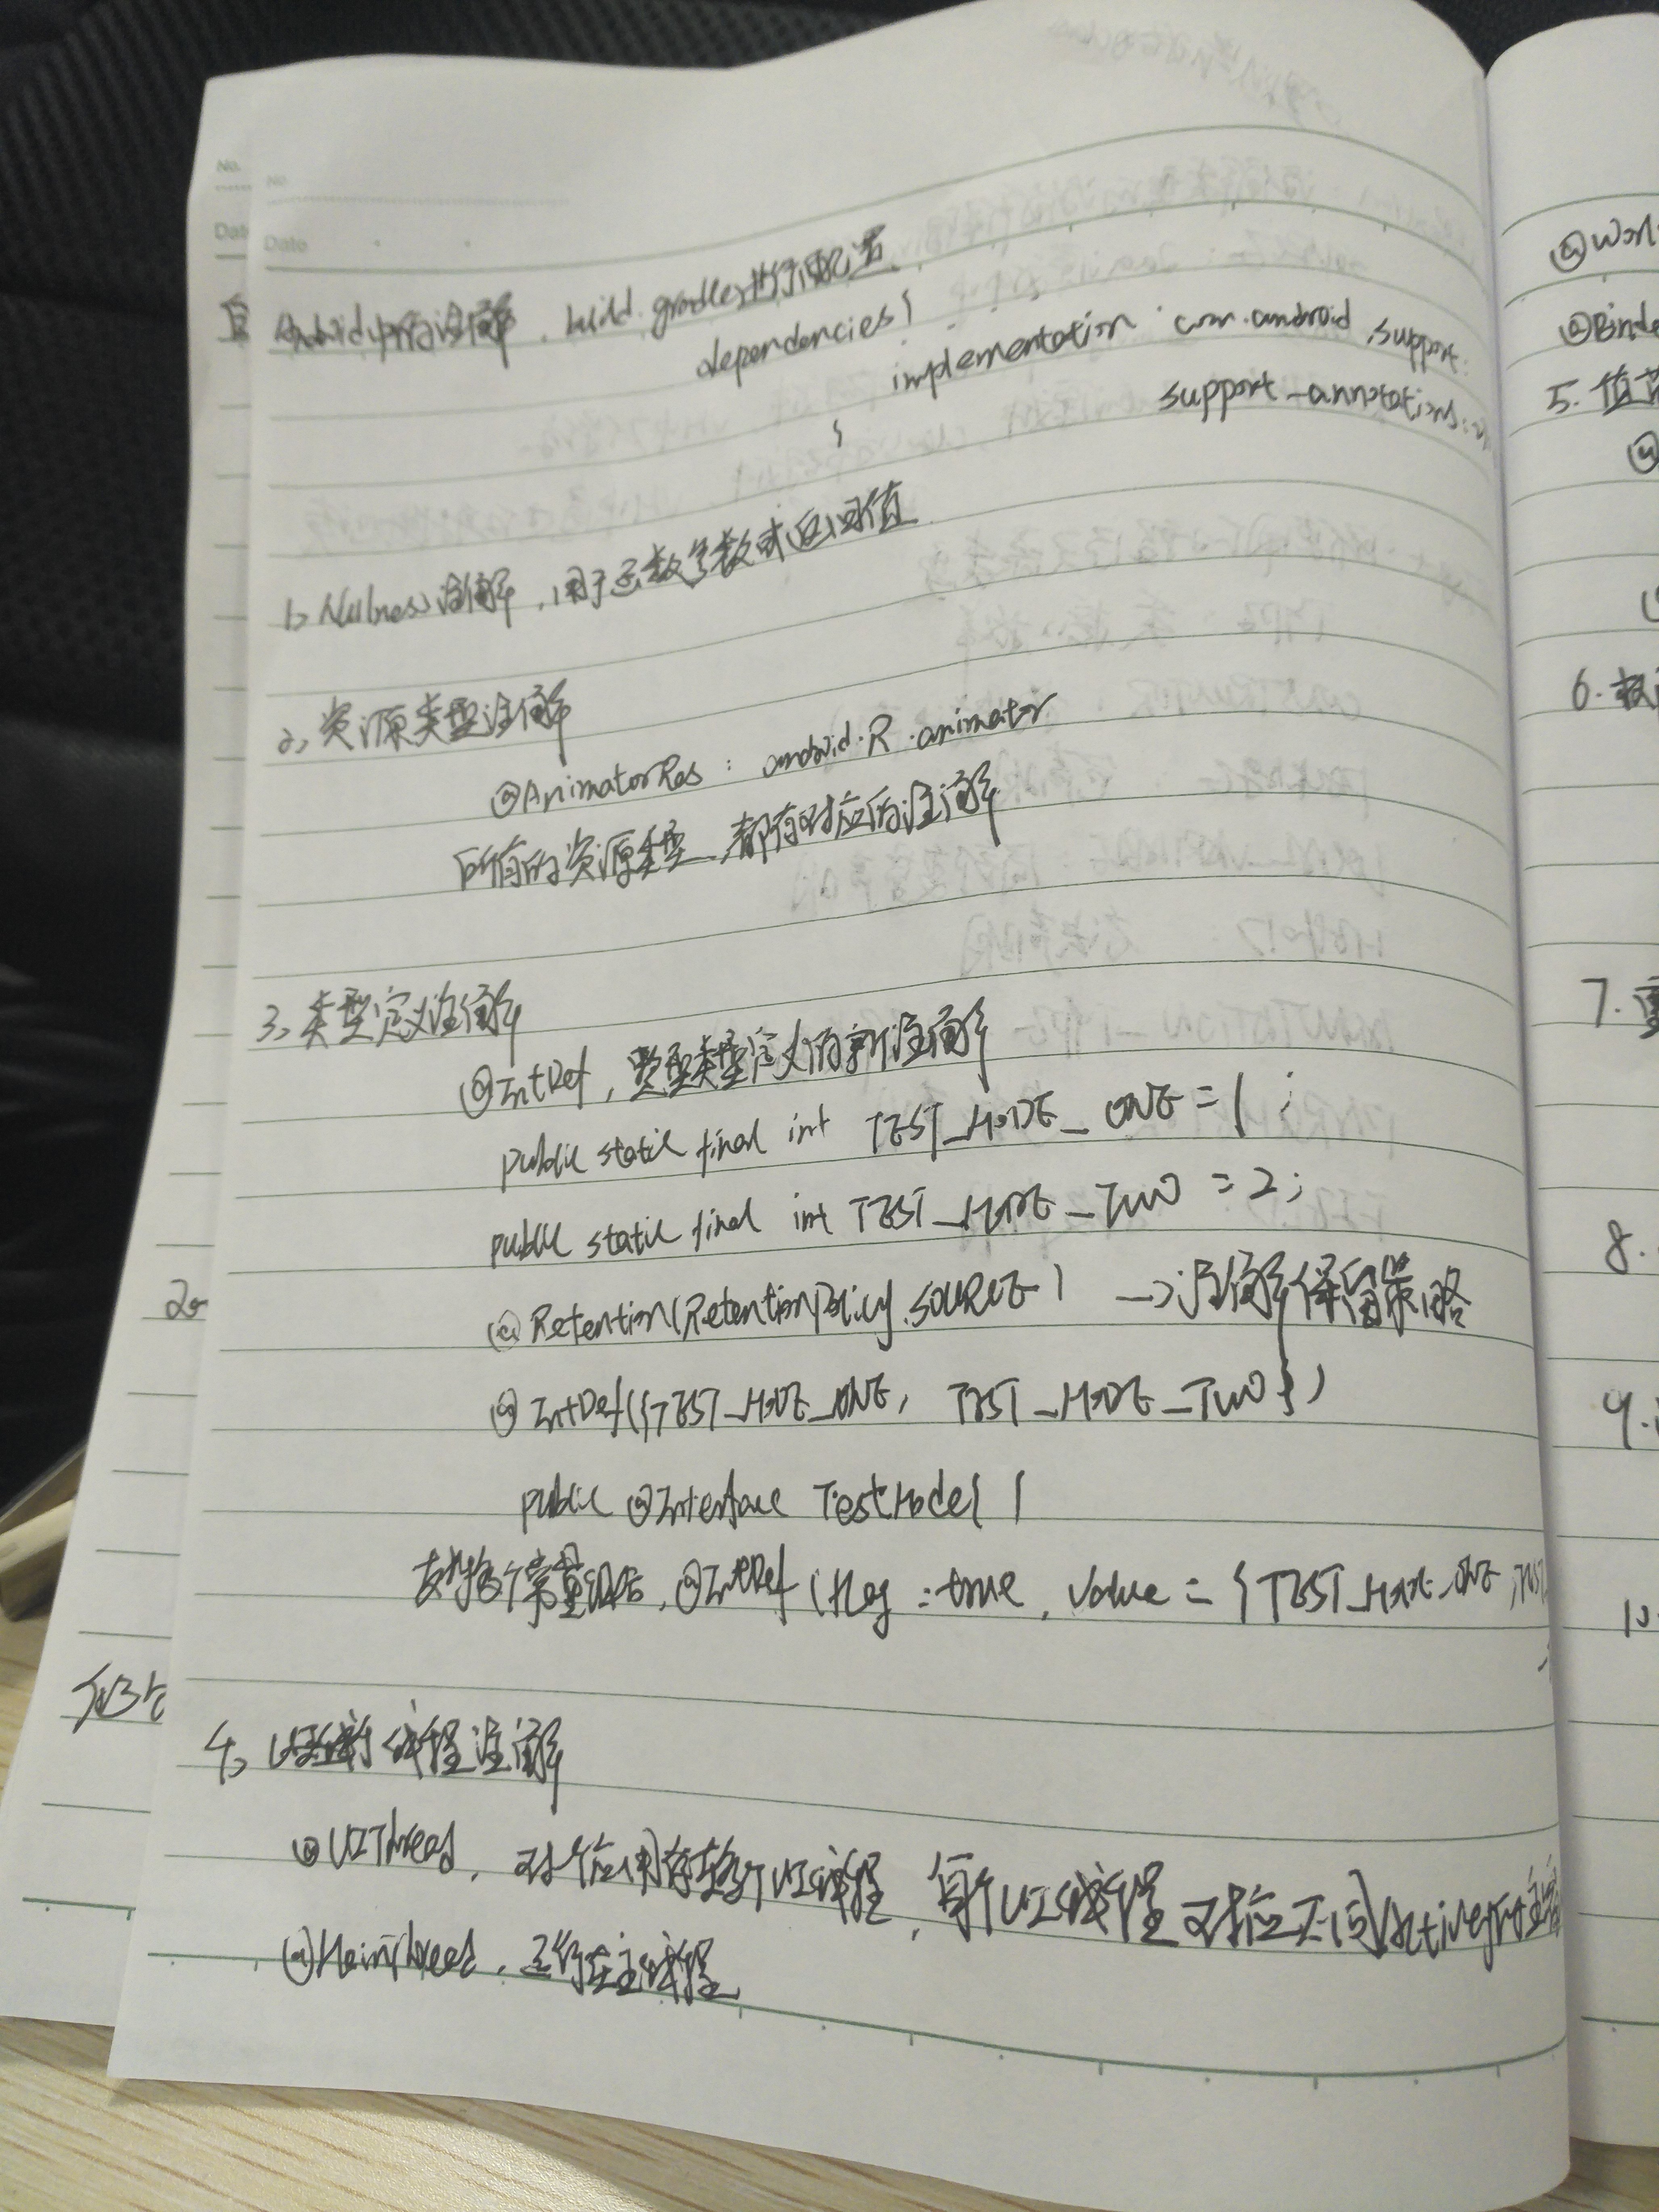 No.
Date
Android中的注解, build.gradle进行配置
dependencies{
implementation 'com.android.support:
support-annotations:
}
1、Nullness注解,用于函数参数或返回值
2、资源类型注解
@AnimatorRes : android.R.animator
所有的资源类型,都有对应的注解
3、类型定义注解
@IntDef,整型类型定义的新注解
public static final int TEST_MODE_ONE = 1;
public static final int TEST_MODE_TWO = 2;
@Retention(RetentionPolicy.SOURCE) → 注解保留策略
@IntDef({TEST_MODE_ONE, TEST_MODE_TWO})
public @Interface TestMode{ }
支持多个常量组合,@IntDef(flag = true, value = {TEST_MODE_ONE,
4、线程注解
@UIThread, 对个应用存在多个UI线程,每个UI线程对应不同Activity
@MainThread,运行在主线程
No.
Dat
@Work
@Binde
5.值
@
6.权
7.重
8.
9.
10.